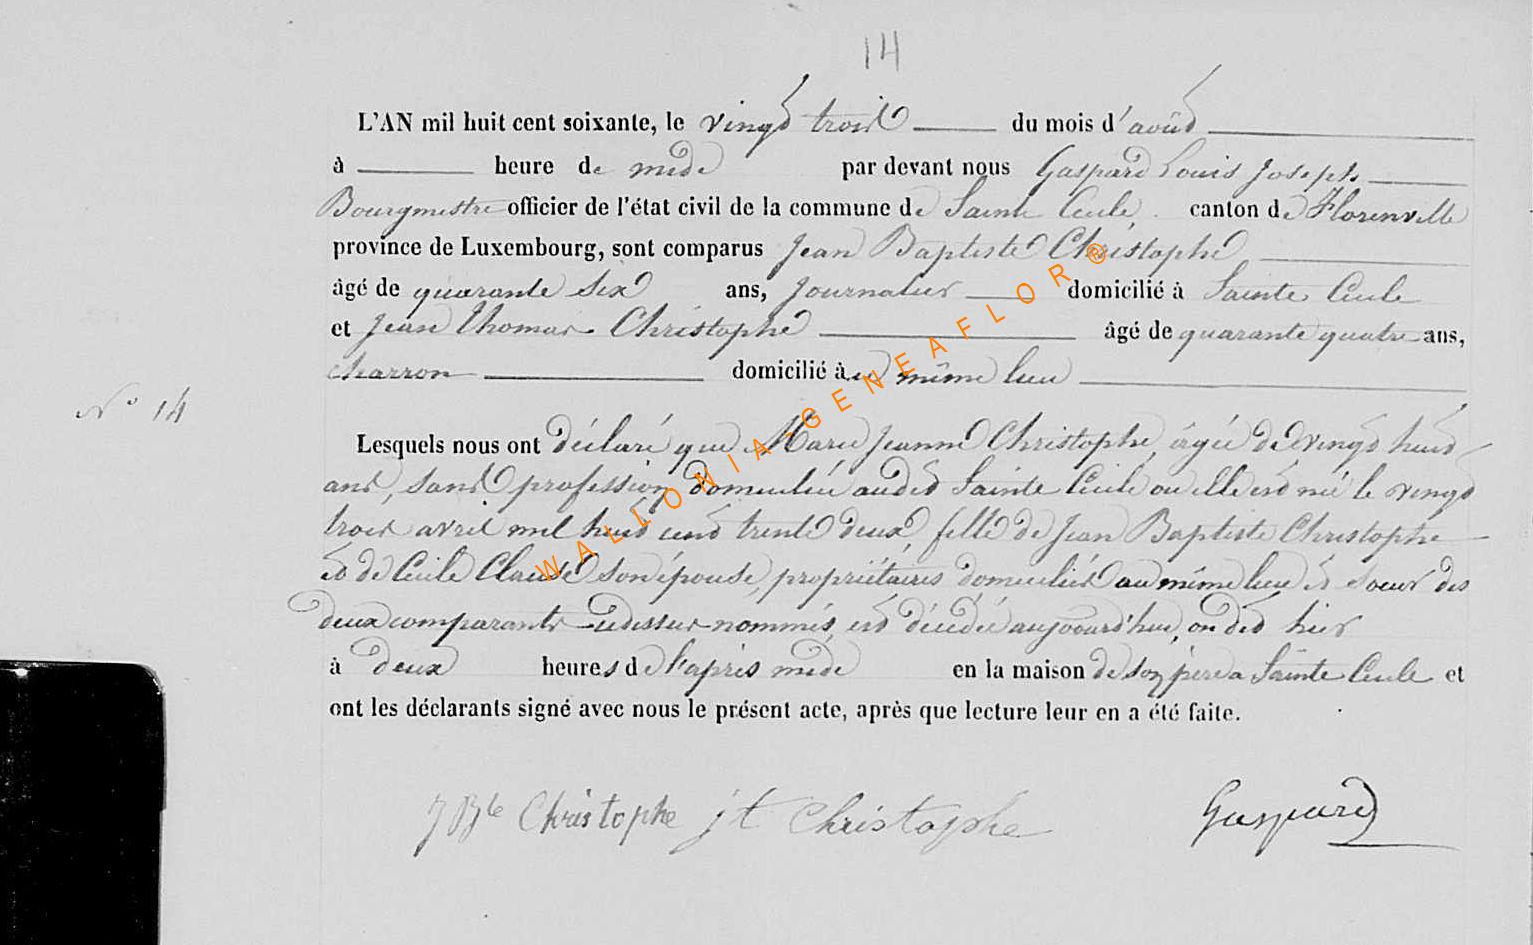 14
L'AN mil huit cent soixante, le vingt trois du mois d'août
à heure de midi par devant nous Gaspard Louis Joseph
Bourgmestre officier de l'état civil de la commune de Sainte Cécile canton de Florenville
province de Luxembourg, sont comparus Jean Baptiste Christophe
âgé de quarante six ans, Journalier domicilié à Sainte Cécile
et Jean Thomas Christophe âgé de quarante quatre ans,
charron domicilié au même lieu
N° 14
Lesquels nous ont déclaré que Marie Jeanne Christophe, âgée de vingt huit
ans, sans profession domiciliée audit Sainte Cécile ou elle est né le vingt
trois avril mil huit cent trente deux fille de Jean Baptiste Christophe
et de Cécile Clausse son épouse, propriétaires domiciliés au même lieu et soeur des
deux comparants cidessus nommés, est décédée aujourd'hui, ou dit hier
à deux heures de l'après midi en la maison de son père a Sainte Cécile et
ont les déclarants signé avec nous le présent acte, après que lecture leur en a été faite.
J Bte Christophe j t Christophe Gaspard
WALLONIA-GENEAFLOR®